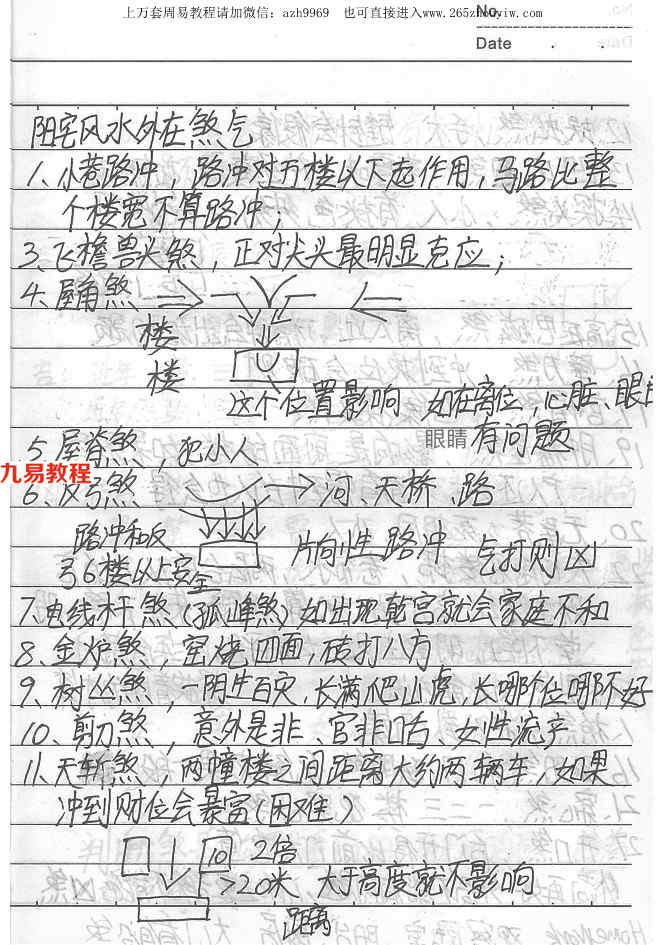 上万套周易教程请加微信：azh9969 也可直接进入www.265zhouyiw.com
No.
Date . .
阳宅风水外在煞气
1、小巷路冲，路冲对五楼以下起作用，马路比整
个楼宽不算路冲；
3、飞檐兽头煞，正对尖头最明显克应；
4、屋角煞
楼
楼
这个位置影响 如在离位，心脏、眼睛
5、屋脊煞，犯小人 眼睛 有问题
九易教程
6、反弓煞 河、天桥、路
路冲和反 片向性路冲 气打则凶
弓6楼以上安全
7、电线杆煞（孤峰煞）如出现乾宫就会家庭不和
8、金炉煞，窑烧四面，砖打八方
9、树丛煞，一阴生百灾，长满爬山虎，长哪个位哪不好
10、剪刀煞，意外是非、官非口舌、女性流产
11、天斩煞，两幢楼之间距离大约两辆车，如果
冲到财位会暴富（困难）
10 2倍
>20米 大于高度就不影响
距离